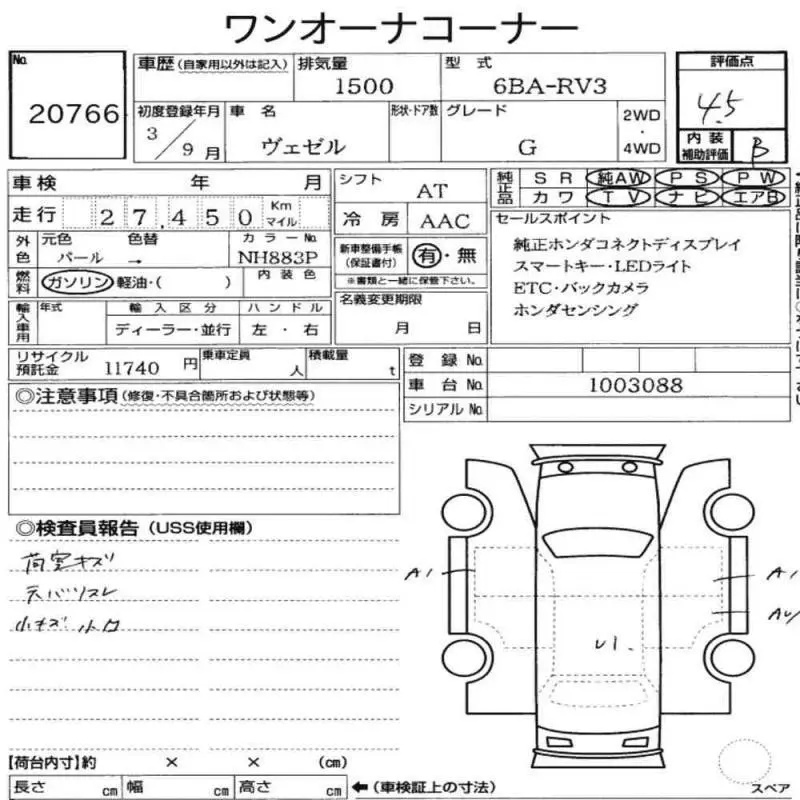 ワンオーナコーナー
No. 20766
車歴(自家用以外は記入) 排気量 1500 型式 6BA-RV3
評価点 4.5
初度登録年月 3/9月 車名 ヴェゼル 形状・ドア数 グレード G 2WD・4WD
内装補助評価 B
車検 年 月
シフト AT
純正品 SR 純AW PS PW
カワ TV ナビ エアB
走行 27,450 Km マイル
冷房 AAC
セールスポイント
外色 元色 パール 色替 → カラーNo. NH883P
新車整備手帳(保証書付) 有・無
※書類と一緒に保管下さい。
純正ホンダコネクトディスプレイ
スマートキー・LEDライト
ETC・バックカメラ
ホンダセンシング
燃料 ガソリン 軽油・( ) 内装色
名義変更期限 月 日
輸入車用 年式 輸入区分 ディーラー・並行 ハンドル 左・右
リサイクル預託金 11740円 乗車定員 人 積載量 t
登録No.
車台No. 1003088
シリアルNo.
◎注意事項(修復・不具合箇所および状態等)
◎検査員報告(USS使用欄)
荷室キズ
天バリスレ
小キズ 小凹
A1
A1
U1.
【荷台内寸】約 × × (cm)
長さ cm 幅 cm 高さ cm ←(車検証上の寸法)
スペア